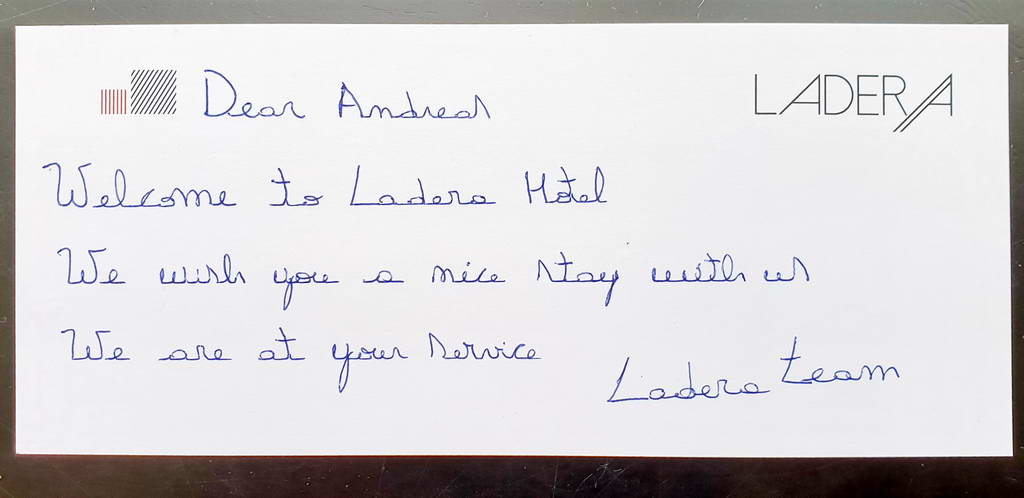 Dear Andreas
LADERA
Welcome to Ladera Hotel
We wish you a nice stay with us
We are at your service
Ladera team